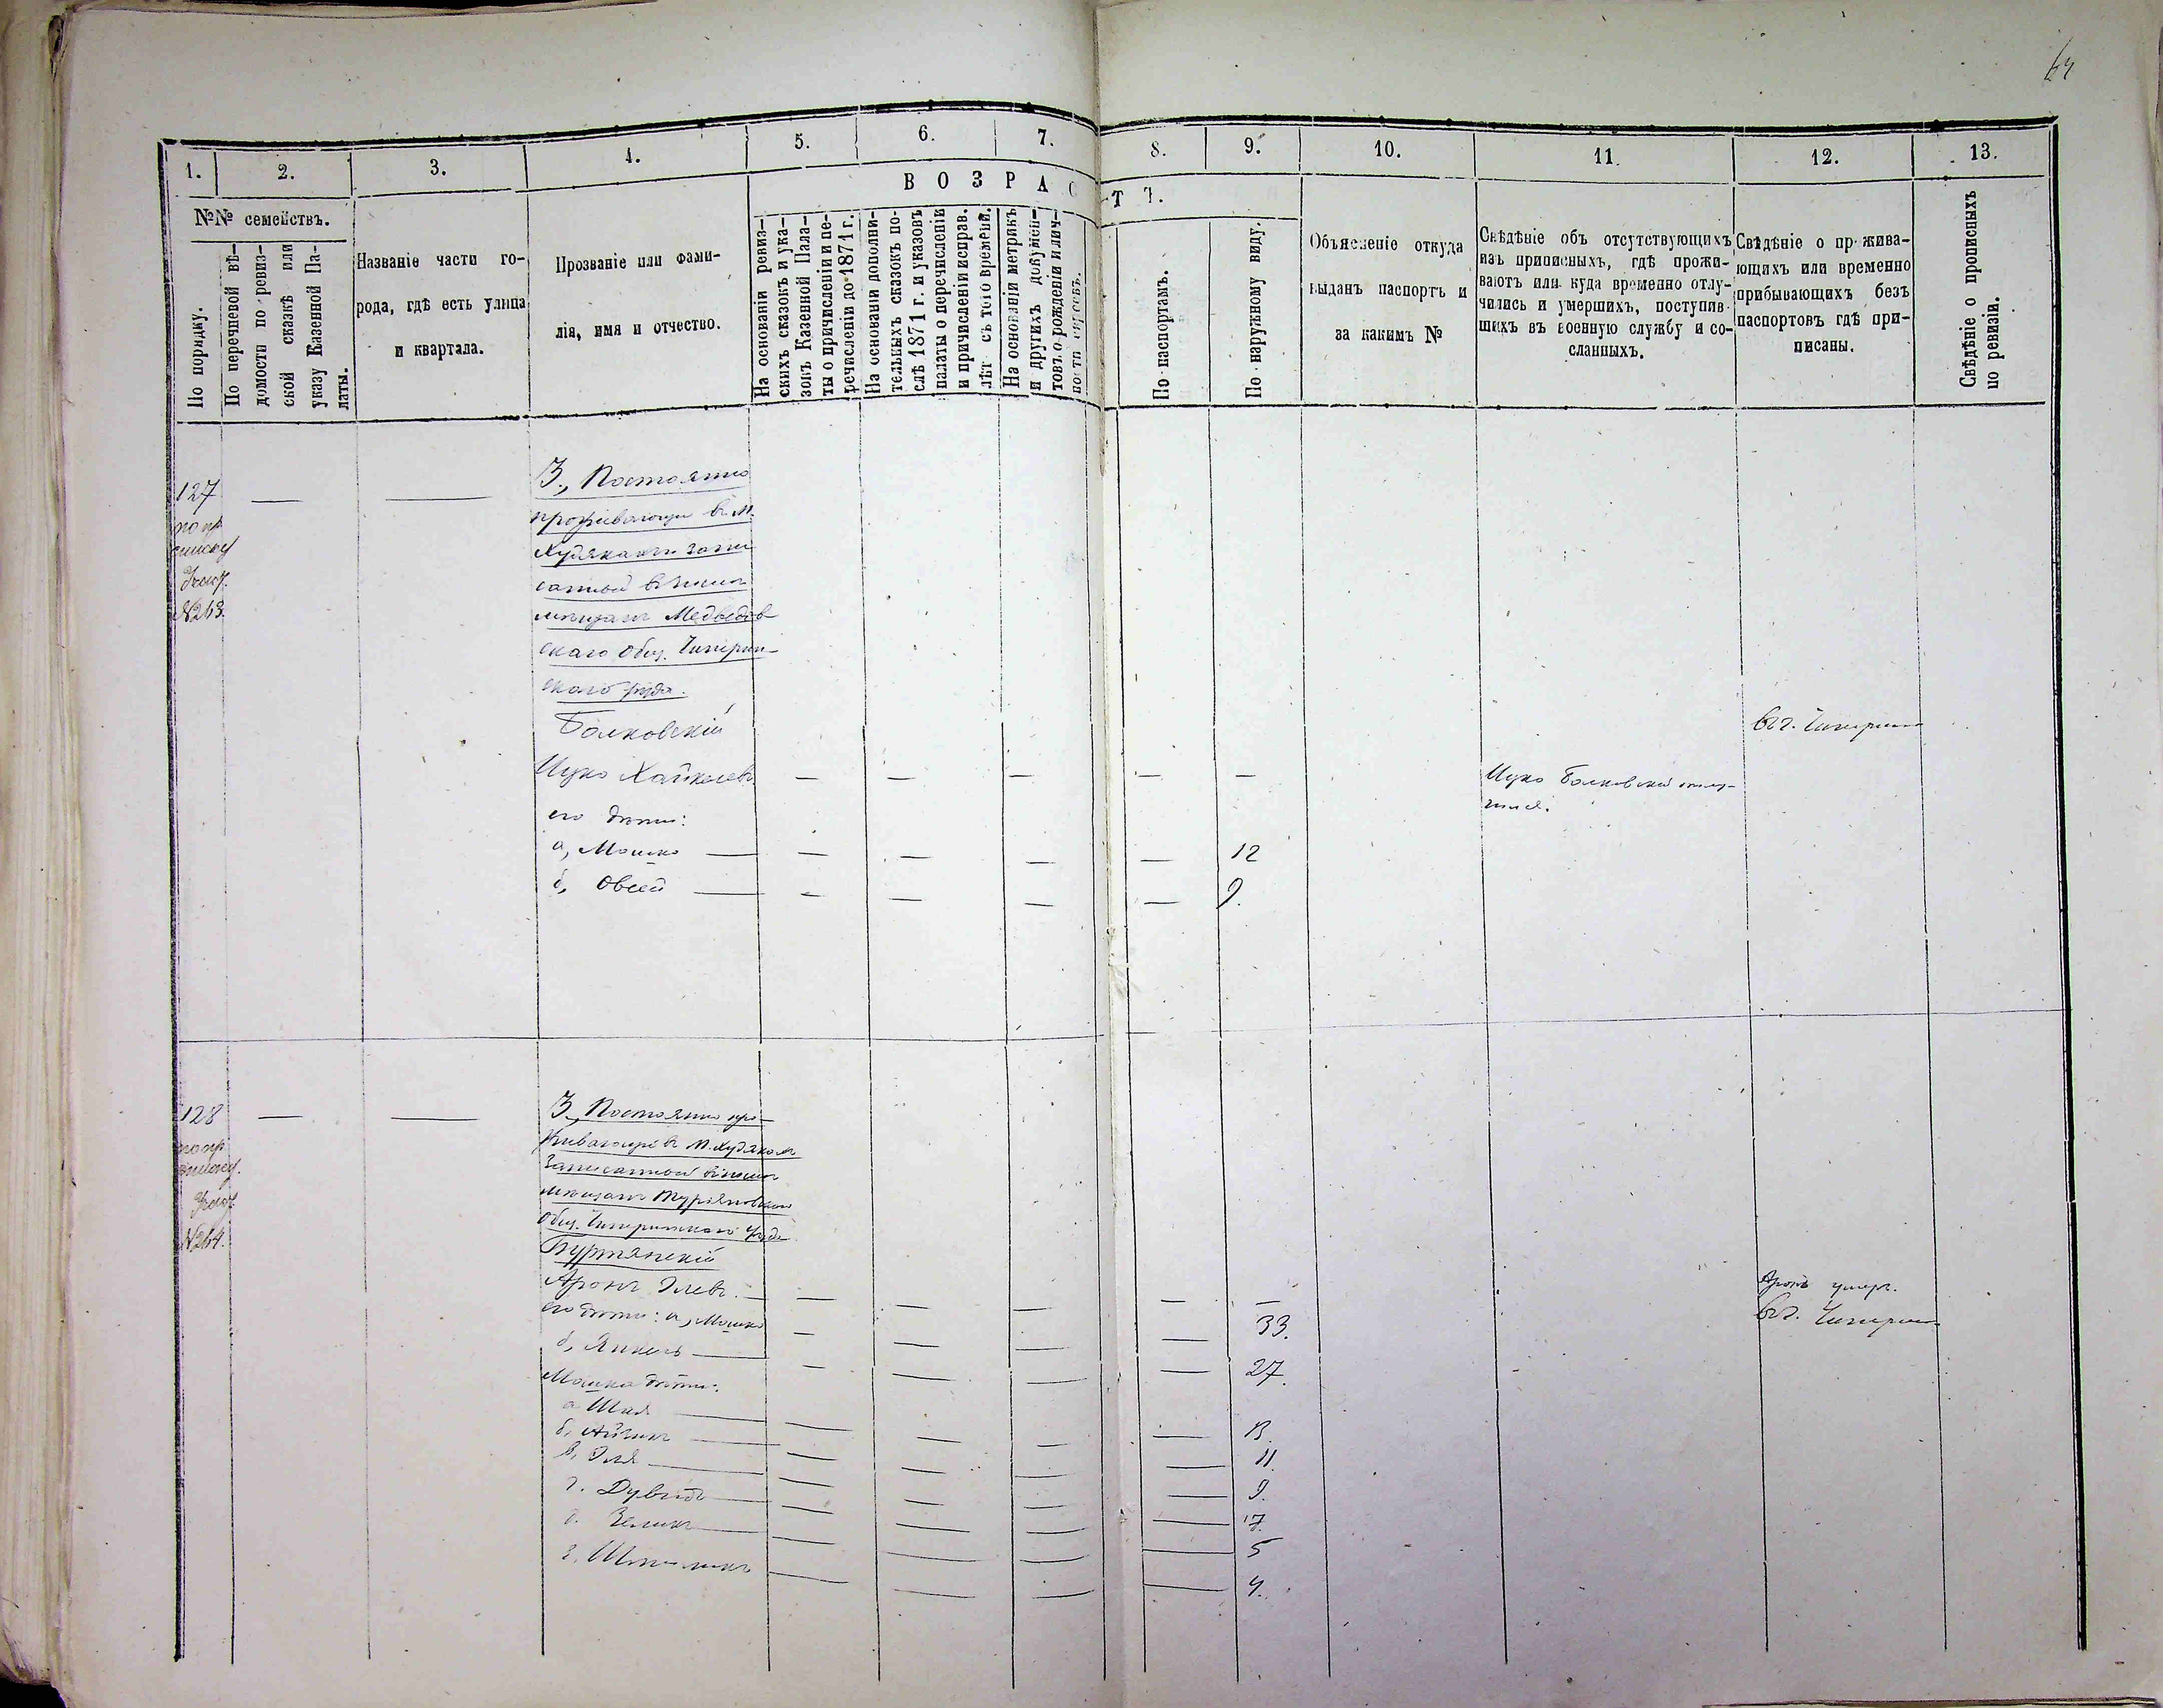 64
1.
2.
3.
4.
5.
6.
7.
8.
9.
10.
11.
12.
13.
ВОЗРАСТЪ.
№№ семействъ.
По порядку.
По перечневой вѣ-
домости по ревиз-
ской сказкѣ или
указу Казенной Па-
латы.
Названіе части го-
рода, гдѣ есть улица
и квартала.
Прозваніе или фами-
лія, имя и отчество.
На основаніи ревиз-
скихъ сказокъ и ука-
зовъ Казенной Пала-
ты о причисленіи и пе-
речисленіи до 1871 г.
На основаніи дополни-
тельныхъ сказокъ по-
слѣ 1871 г. и указовъ
палаты о перечисленіи
и причисленіи исправ.
лѣт съ того времени.
На основаніи метрикъ
и другихъ докумен-
товъ о рожденіи и лич-
ности
По паспортамъ.
По наружному виду.
Объясненіе откуда
выданъ паспортъ и
за какимъ №
Свѣдѣніе объ отсутствующихъ
изъ приписныхъ, гдѣ прожи-
ваютъ или куда временно отлу-
чились и умершихъ, поступив-
шихъ въ военную службу и со-
сланныхъ.
Свѣдѣніе о прожива-
ющихъ или временно
прибывающихъ безъ
паспортовъ гдѣ при-
писаны.
Свѣдѣніе о прописныхъ
по ревизіи.
127
по пр.
списку
№263.
3., Постоянно
проживающи в М.
Худякахъ запи
санной въ
мѣщанъ Медведов
скаго Общ. Чигирин-
ского уѣзда.
Болковскій
Ицко Хаймовъ
его дѣти:
а, Мошко — — — — — 12
б, Овсей — — — — — 9.
Ицко Болковскій отлу-
чился.
въ г. Чигирин
128
по пр.
списку.
№264.
3., Постоянно про
живающи в М. Худякахъ
Записанной
мѣщанъ
Общ. Чигиринскаго уѣзда
Буртянскій
Аронъ Элевъ. — — — — — —
его дѣти: а, Мошко — — — — 33.
б, Янкель — — — — — 27.
Мошка дѣти:
а Шая — — — — — 13.
б, Айзикъ — — — — — 11.
в, Эля — — — — — 9.
г. Дувидъ — — — — — 7.
д. Зеликъ — — — — — 5
— — — — 4.
Аронъ умеръ.
въ г. Чигирин